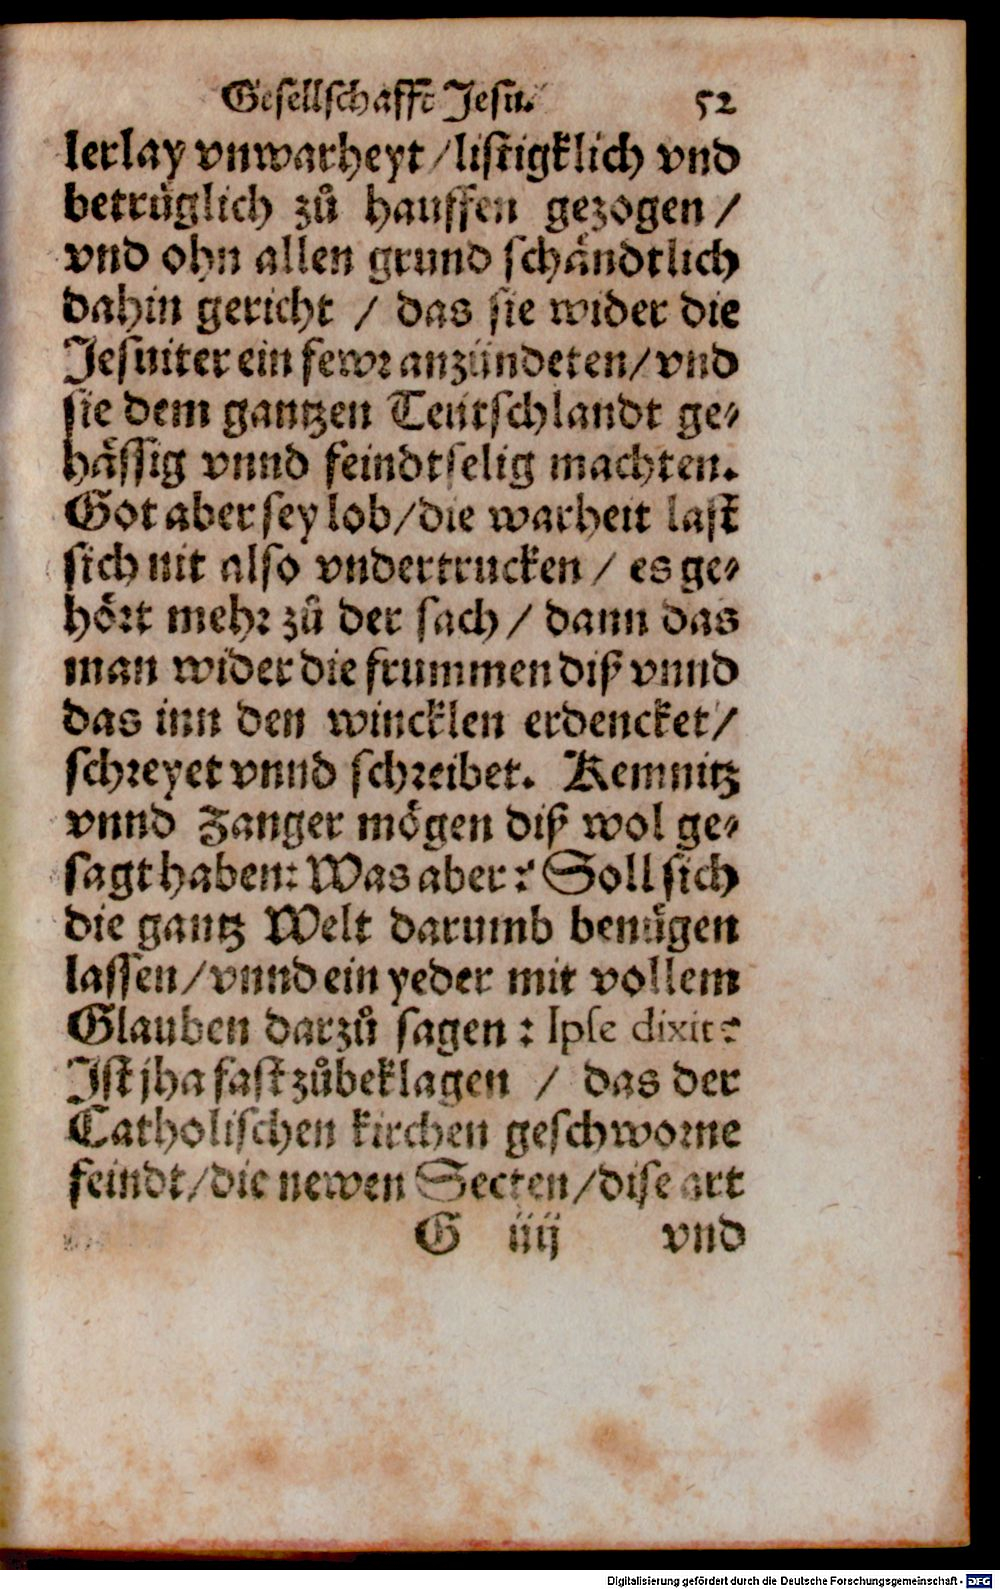 Gesellschafft Jesu. 52
lerlay vnwarheyt / listigklich vnd
betrüglich zů hauffen gezogen /
vnd ohn allen grund schändtlich
dahin gericht / das sie wider die
Jesuiter ein fewr anzündeten / vnd
sie dem gantzen Teütschlandt ge-
hässig vnnd feindtselig machten.
Got aber sey lob / die warheit last
sich nit also vndertrucken / es ge-
hört mehr zů der sach / dann das
man wider die frummen diß vnnd
das inn den wincklen erdencket /
schreyet vnnd schreibet. Kemnitz
vnnd Zanger mögen diß wol ge-
sagt haben: Was aber? Soll sich
die gantz Welt darumb benügen
lassen / vnnd ein yeder mit vollem
Glauben darzů sagen: Ipse dixit?
Ist jha fast zůbeklagen / das der
Catholischen kirchen geschworne
feindt / die newen Secten / dise art
G iiij vnd
Digitalisierung gefördert durch die Deutsche Forschungsgemeinschaft - DFG